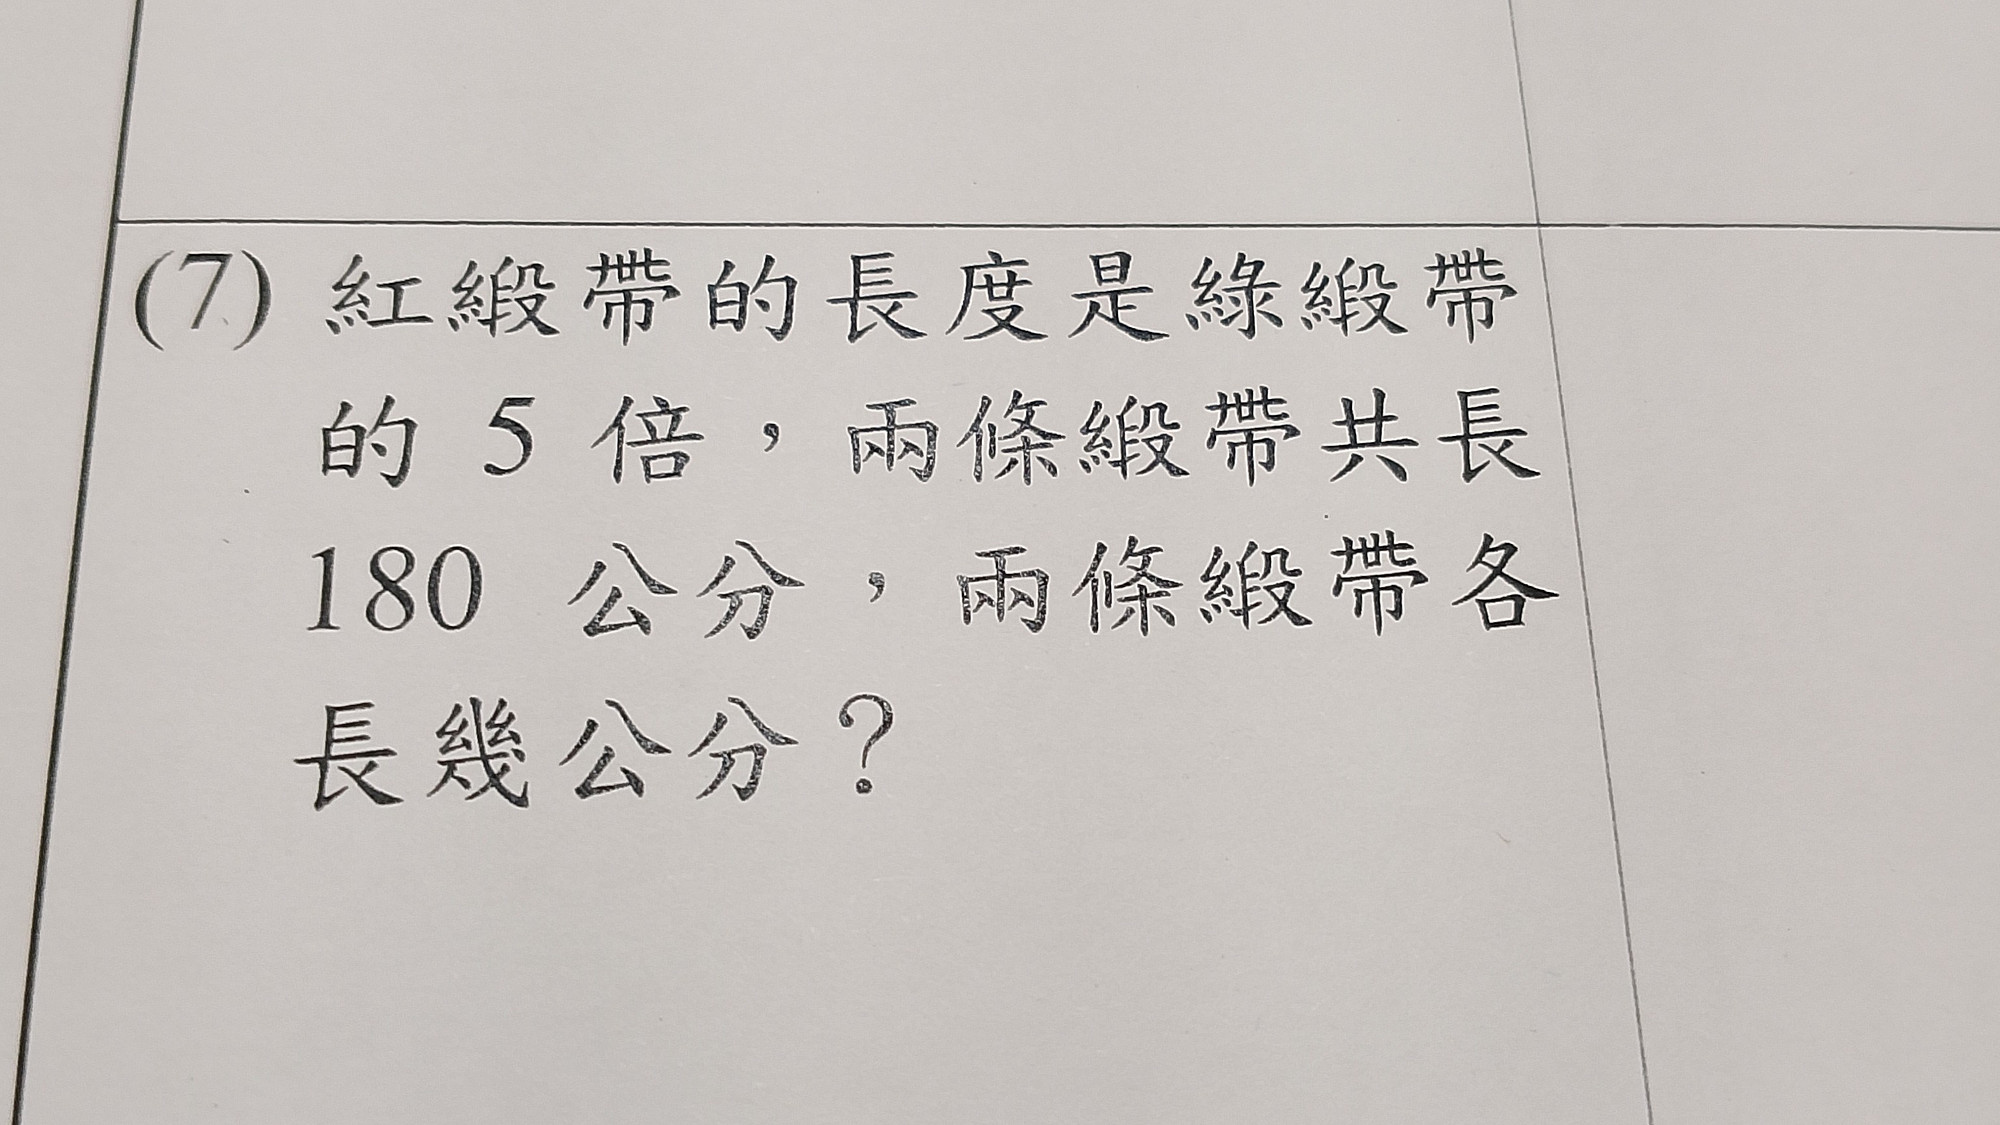 (7) 紅緞帶的長度是綠緞帶
的 5 倍，兩條緞帶共長
180 公分，兩條緞帶各
長幾公分？